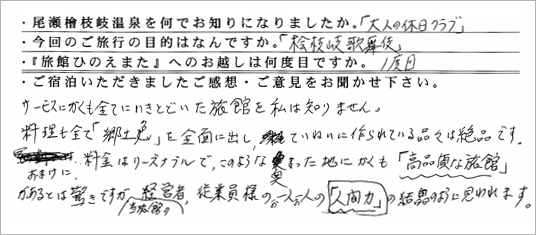 ・尾瀬檜枝岐温泉を何でお知りになりましたか。「大人の休日クラブ」
・今回のご旅行の目的はなんですか。「桧枝岐歌舞伎」
・『旅館ひのえまた』へのお越しは何度目ですか。 1度目
・ご宿泊いただきましたご感想・ご意見をお聞かせ下さい。
サービスにかくも全てにいきとどいた旅館を私は知りません。
料理も全て「郷土色」を全面に出し、ていねいに作られている品々は絶品です。
おまけに、料金はリーズナブルで、このような奥まった地にかくも「高品質な旅館」
があるとは驚きですが、経営者、従業員様の一人一人の「人間力」の結果のように思われます。
当旅館の